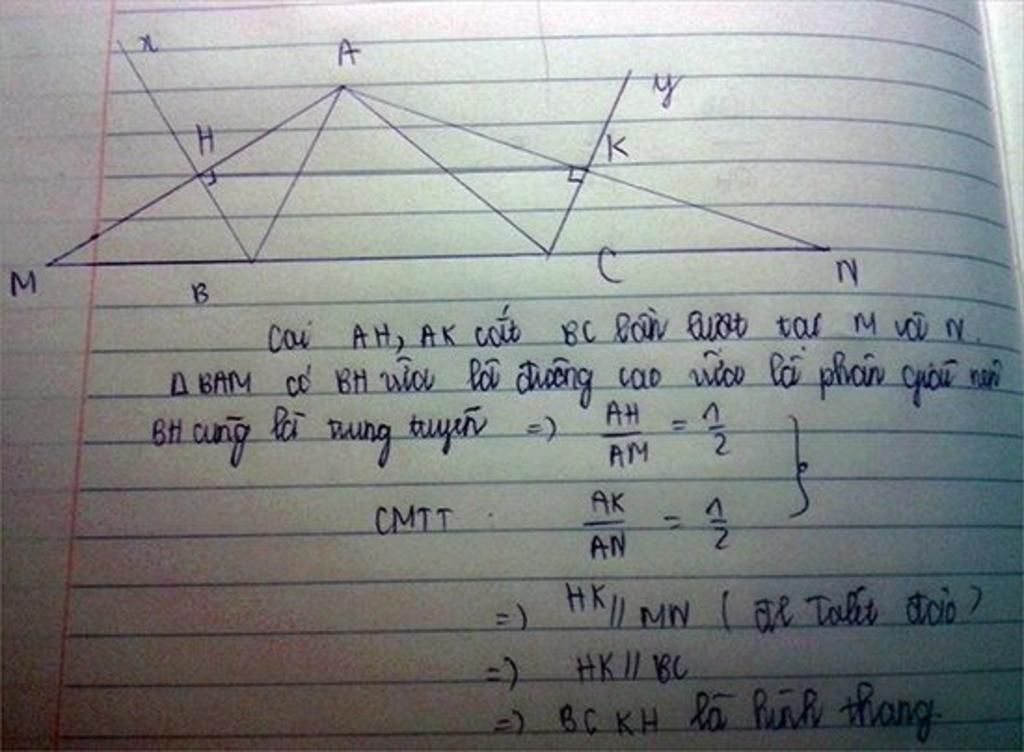 x
A
y
H
K
M
B
C
N
Gọi AH, AK cắt BC lần lượt tại M và N.
Δ BAM có BH vừa là đường cao vừa là phân giác nên
BH cũng là trung tuyến => AH/AM = 1/2
CMTT. AK/AN = 1/2
=> HK // MN (đl Talét đảo)
=> HK // BC
=> BCKH là hình thang.